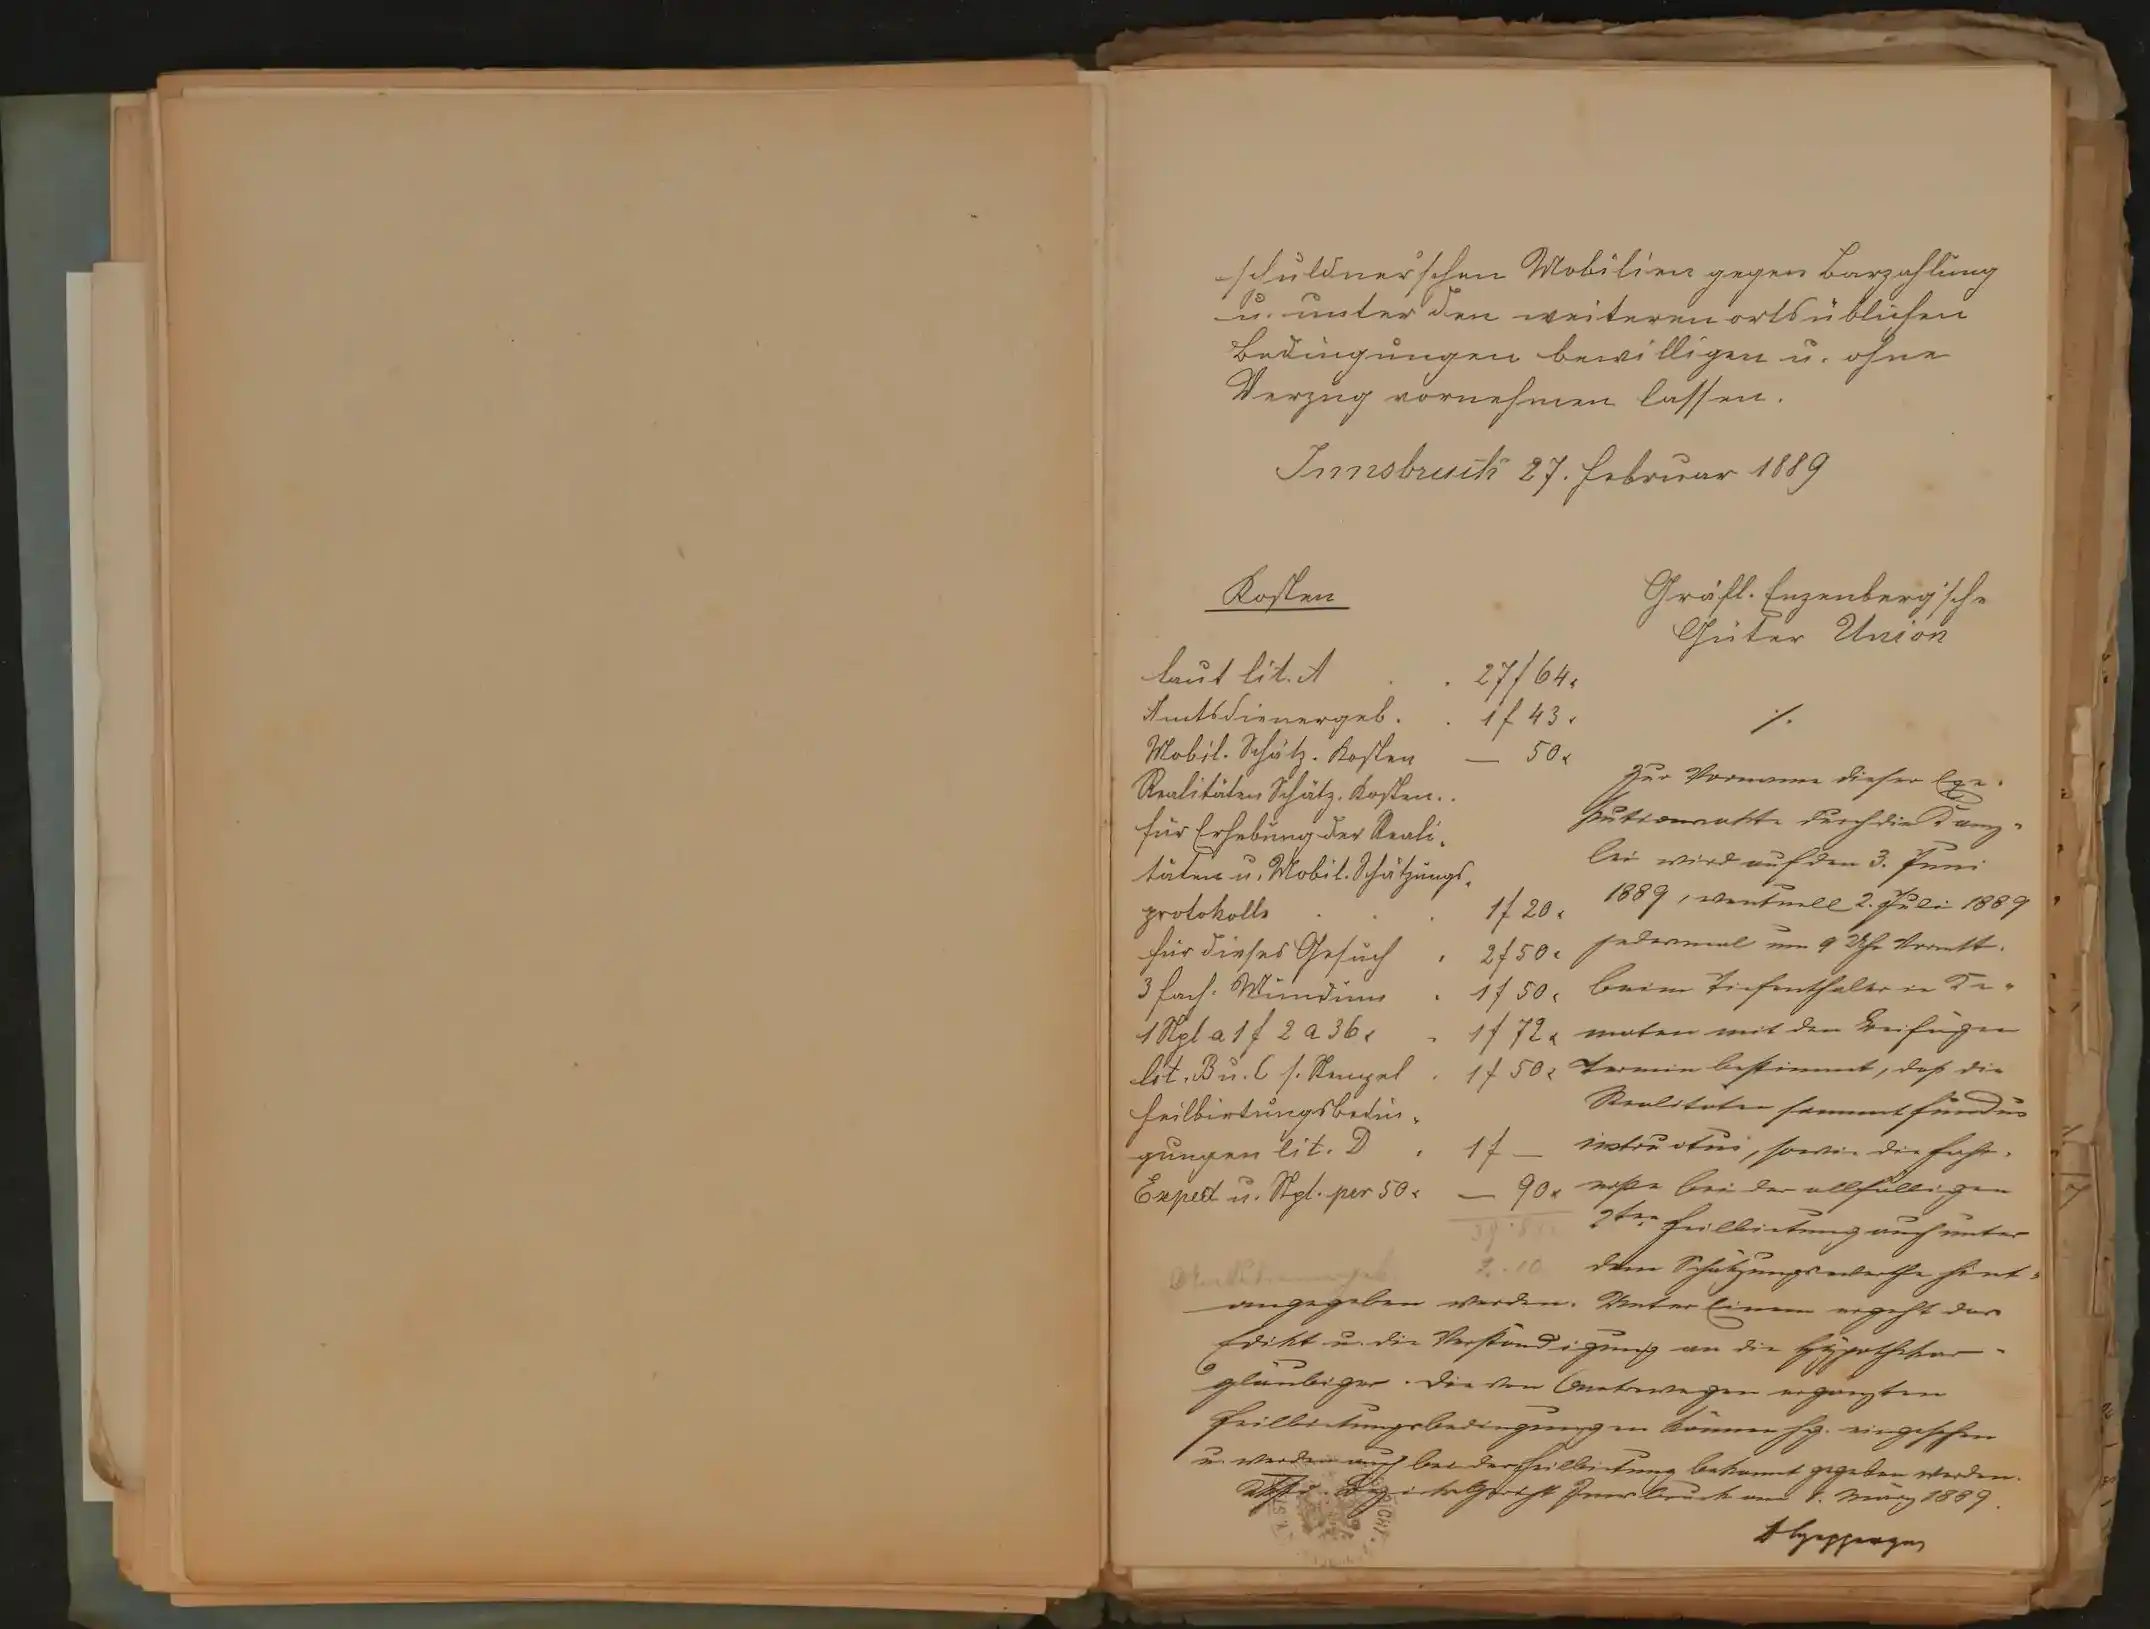 schuldner'schen Mobilien gegen Barzahlung
u. unter den weiteren ortsüblichen
Bedingungen bewilligen u. ohne
Verzug vornehmen lassen.
Innsbruck 27. Februar 1889
Kosten
laut lit. A . . 27 f 64 x
Amtsdienergeb. . 1 f 43 x
Mobil. Schätz. Kosten — 50 x
Realitäten Schätz. Kosten . .
für Erhebung der Reali-
täten u. Mobil. Schätzungs-
protokolle . . . 1 f 20 x
für dieses Gesuch . 2 f 50 x
3 fach. Mundum . 1 f 50 x
1 Stpl a 1 f 2 a 36 x . 1 f 72 x
lit. B u. C s. Stempel . 1 f 50 x
Feilbietungsbedin-
gungen lit. D . 1 f —
Exped u. Stpl. per 50 x — 90 x
Gräfl. Enzenberg'sche
Güter Union
./.
Zur Vorname dieser Exe-
kutionsakte durch die Kanz-
lei wird auf den 3. Juni
1889, eventuell 2. Juli 1889
jedesmal um 9 Uhr Vormitt.
beim Tiefenthaler in Ke-
maten mit dem Beifügen
Termin bestimmt, daß die
Realitäten sammt fundus
instructus, sowie die Fahr-
niße bei der allfälligen
2ten Feilbietung auch unter
dem Schätzungswerthe hint-
angegeben werden. Unter Einem ergeht das
Edikt u. die Verständigung an die Hypothekar-
gläubiger. Die von Amtswegen ergänzten
Feilbietungsbedingungen können hg. eingesehen
u. werden auch bei der Feilbietung bekannt gegeben werden.
Bezirksgericht Innsbruck am 1. März 1889.